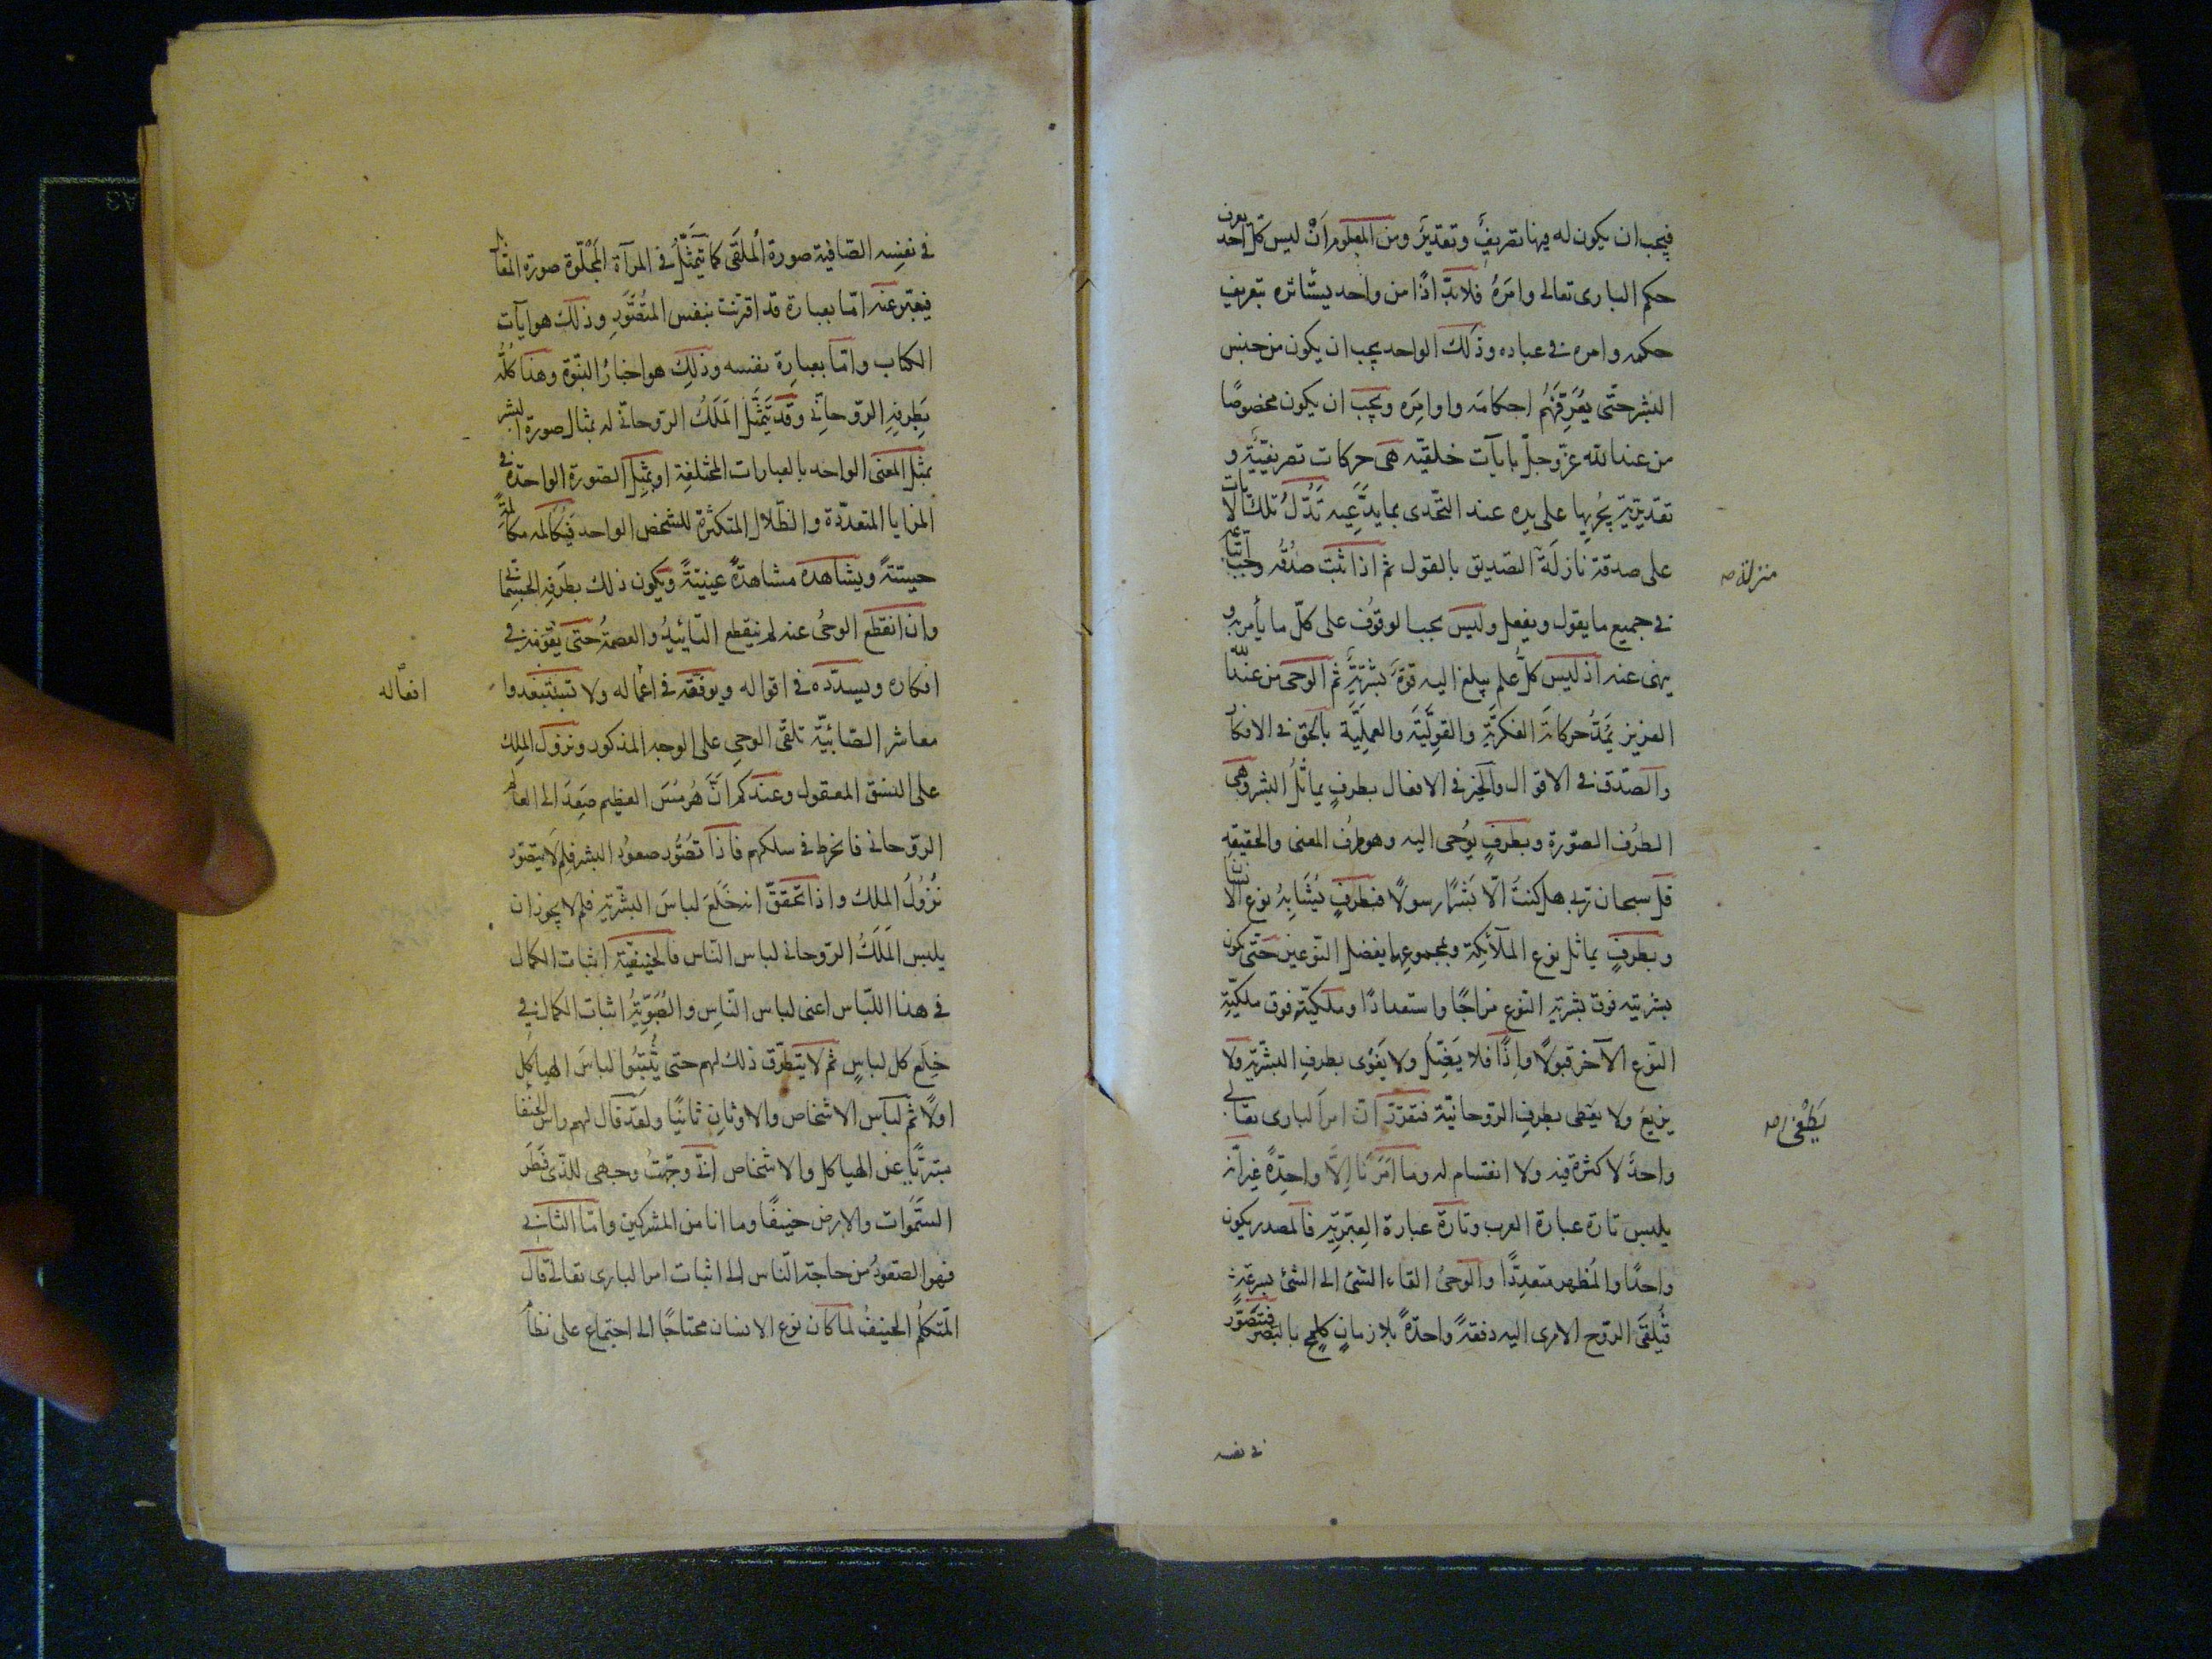 فيجب ان يكون له فيها تصريفٌ وتقديرٌ ومن المعلوم اَنْ ليس كلّ احد يعرف
حكم البارى تعالى وامرَهُ فلابدّ اذًا من واحد يستاثره بتعريف
حكمه وامره فى عباده وذلك الواحد يجب ان يكون من جنس
البشر حتّى يُعَرِّفَهُم احكامَه واوامِرَه ويجب ان يكون مخصوصًا
من عند الله عزّ وجلّ بايآت خلقيّه هى حركات تصريفيّةٍ و
تقديريّةٍ يُجْرِيها على يده عند التّحدى بما يدَّعِيه تَدُلّ تلك الايات
على صدقة نازلة التّصديق بالقول ثم اذا ثبت صدقُه وجب اتّباعه
منزلة صح
فى جميع ما يقول ويفعل وليس يجب الوقوف على كلّ ما يأمر به و
ينهى عنه اذ ليس كلّ علم يبلغ اليه قوّة بشريّةٌ ثم الوحى من عند الله
العزيز يَمُدّ حركاته الفكريّة والقوليّة والعمليّة بالحق فى الافكار
والصّدق فى الاقوال والخير فى الافعال بطرفٍ يماثل البشر وهى
الطرف الصّورة وبطرفٍ يُوحى اليه وهو طرف المعنى والحقيقة
قل سبحان ربى هل كنت الّا بَشَرًا رسولًا فبطرفٍ يُشَابِهُ نوع الانسان
وبطرفٍ يماثل نوع الملآئكة وبمجموعهما يفضل النّوعين حتّى يكون
بشريته فوق بشرية النّوع مزاجًا واستعدادًا وملكيّة فوق ملكيّة
النّوع الآخر قبولًا واِذًا فلا يَضِلّ ولا يَغْوى بطرفِ البشريّة ولا
يزيغ ولا يغطى بطرفِ الرّوحانيّة فتقرّر انّ امرَ البارى تعالى
يَطْغى صح
واحدٌ لا كثرة فيه ولا انقسام له وما امرنا اِلّا واحِدَةٌ غير انّه
يلبس تارة عبارة العرب وتارة عبارة العِبْريّة فالمصدر يكون
واحدًا والمُظهر متعدّدًا والوحىُ القاء الشئ الى الشئ بسرعةٍ
فيُلقى الرّوح الامرى اليه دفعةً واحدةً بلا زمانٍ كلمحٍ بالبصر فتتصوّر
فى نفسه
فى نفسِه الصّافية صورة المُلقَى كما يَتَمَثَّلُ فى المرآة المَجْلُوّة صورة المقابل
فيعبّر عنه امّا بعبارة قد اقترنت بنفس المتصوّرِ وذلك هو ايآت
الكتاب وامّا بعبارة نفسه وذلك هو اخبارُ النبّوة وهذا كُلُّه
بَطرفِهِ الرّوحانِى وقد يَتَمثّل المَلَكُ الرّوحانّى له بمثال صورة البشر
تمثّل المعنى الواحد بالعبارات المختلفة او تمثّل الصّورة الواحدة فى
المرايا المتعدّدة والظّلال المتكثّرة للشخص الواحد فيُكالمه مكالمةً
حسيّةً ويشاهده مشاهدةً عينيّةً ويكون ذلك بطرفِهِ الجسمانى
وان انقطع الوحىُ عنه لم ينقطع التّائيدُ والعصمةُ حتى يقوّمه فى
افكاره ويسدّده فى اقواله ويوفّقه فى اعماله ولا تستبعدوا
افعاله
معاشر الصّابئيّة تلقّى الوحى على الوجه المذكور ونزول الملك
على النسق المعقول وعندكم انّ هُرمُسَ العظيم صَعِدَ الى العالم
الرّوحانى فانخرط فى سلكهم فاذا تُصُوِّر صعودُ البشر فلِمَ لا يتصوّر
نُزُولُ الملك واذا تحقّق انه خَلَعَ لباسَ البشريّة فلم لا يجوز ان
يلبس المَلَكُ الرّوحانى لباس النّاس فالحنيفيّة اثبات الكمال
فى هذا اللّباس اعنى لباس النّاس والصَّبْوَةُ اثبات الكمال فى
خِلَع كل لباسٍ ثم لا يتطرّق ذلك لهم حتى يُثْبِتُوا لباسَ الهياكل
اولًا ثم لباس الاشخاص والاوثان ثانيًا ولقد قال لهم راس الحنفا
متبرّئًا عن الهياكل والاشخاص انّى وجّهتُ وجهى للذّى فطَر
السّمٰوات والارض حنيفًا وما انا من المشركين وامّا الثّانى
فهو الصّعودُ من حاجة النّاس الى اثبات امر البارى تعالى قال
المتكلّمُ الحنيفُ لمّا كان نوع الانسان محتاجًا الى اجتماعٍ على نظام